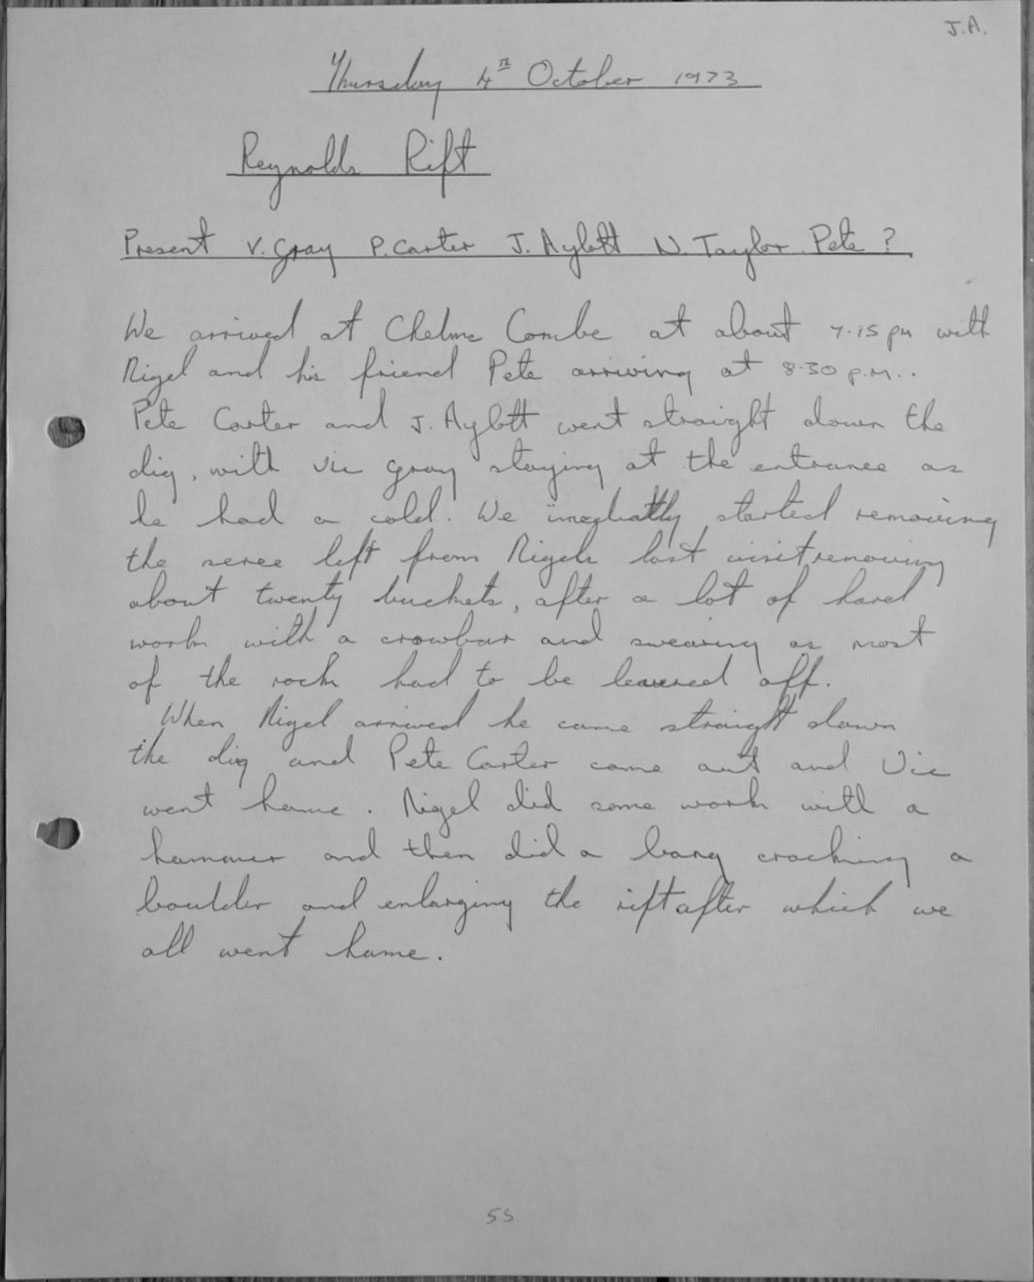 J.A.
Thursday 4th October 1973
Reynolds Rift
Present V. Gray P. Carter J. Aylett N. Taylor Pete ?
We arrived at Chelms Combe at about 7.15 pm with
Nigel and his friend Pete arriving at 8.30 p.m..
Pete Carter and J. Aylett went straight down the
dig, with Vic Gray staying at the entrance as
he had a cold. We imediattly started removing
the scree left from Nigels last visit removing
about twenty buckets, after a lot of hard
work with a crowbar and swearing as most
of the rock had to be levered off.
When Nigel arrived he came straight down
the dig and Pete Carter came out and Vic
went home. Nigel did some work with a
hammer and then did a bang cracking a
boulder and enlarging the rift after which we
all went home.
55